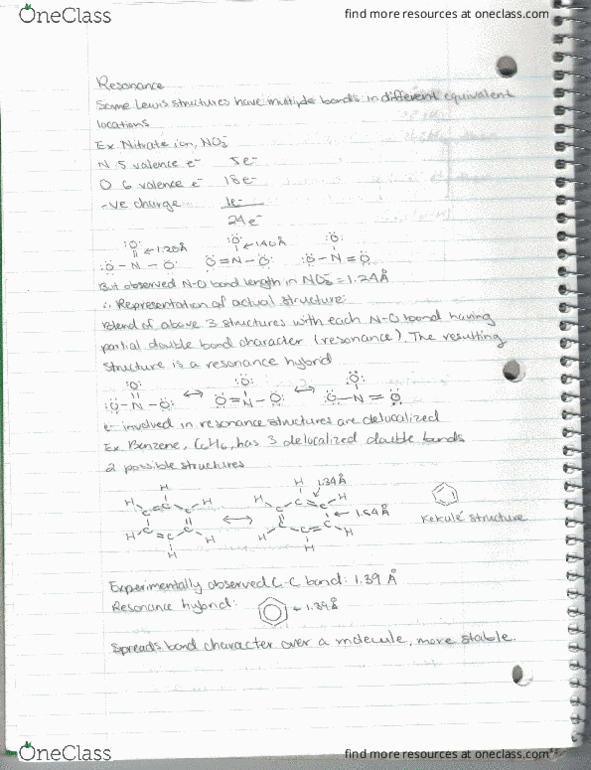 OneClass
find more resources at oneclass.com
Resonance
Some Lewis structures have multiple bonds in different equivalent
locations
Ex Nitrate ion, NO₃⁻
N 5 valence e⁻ 5e⁻
O 6 valence e⁻ 18e⁻
-ve charge 1e⁻
24e⁻
:O: ←1.20Å :O: ←1.40Å :O:
:O-N-O: O=N-O: :O-N=O
But observed N-O bond length in NO₃⁻ = 1.24Å
∴ Representation of actual structure:
Blend of above 3 structures with each N-O bond having
partial double bond character (resonance). The resulting
structure is a resonance hybrid
:O: :O: :O:
:O-N-O: ↔ O=N-O: ↔ :O-N=O
e⁻ involved in resonance structures are delocalized
Ex Benzene, C₆H₆, has 3 delocalized double bonds
2 possible structures
H 1.34Å
H C C H H C C H
C C ↔ C C ← 1.54Å
H C C H H C C H
H H
Kekulé structure
Experimentally observed C-C bond: 1.39 Å
Resonance hybrid: ← 1.39Å
Spreads bond character over a molecule, more stable.
OneClass
find more resources at oneclass.com